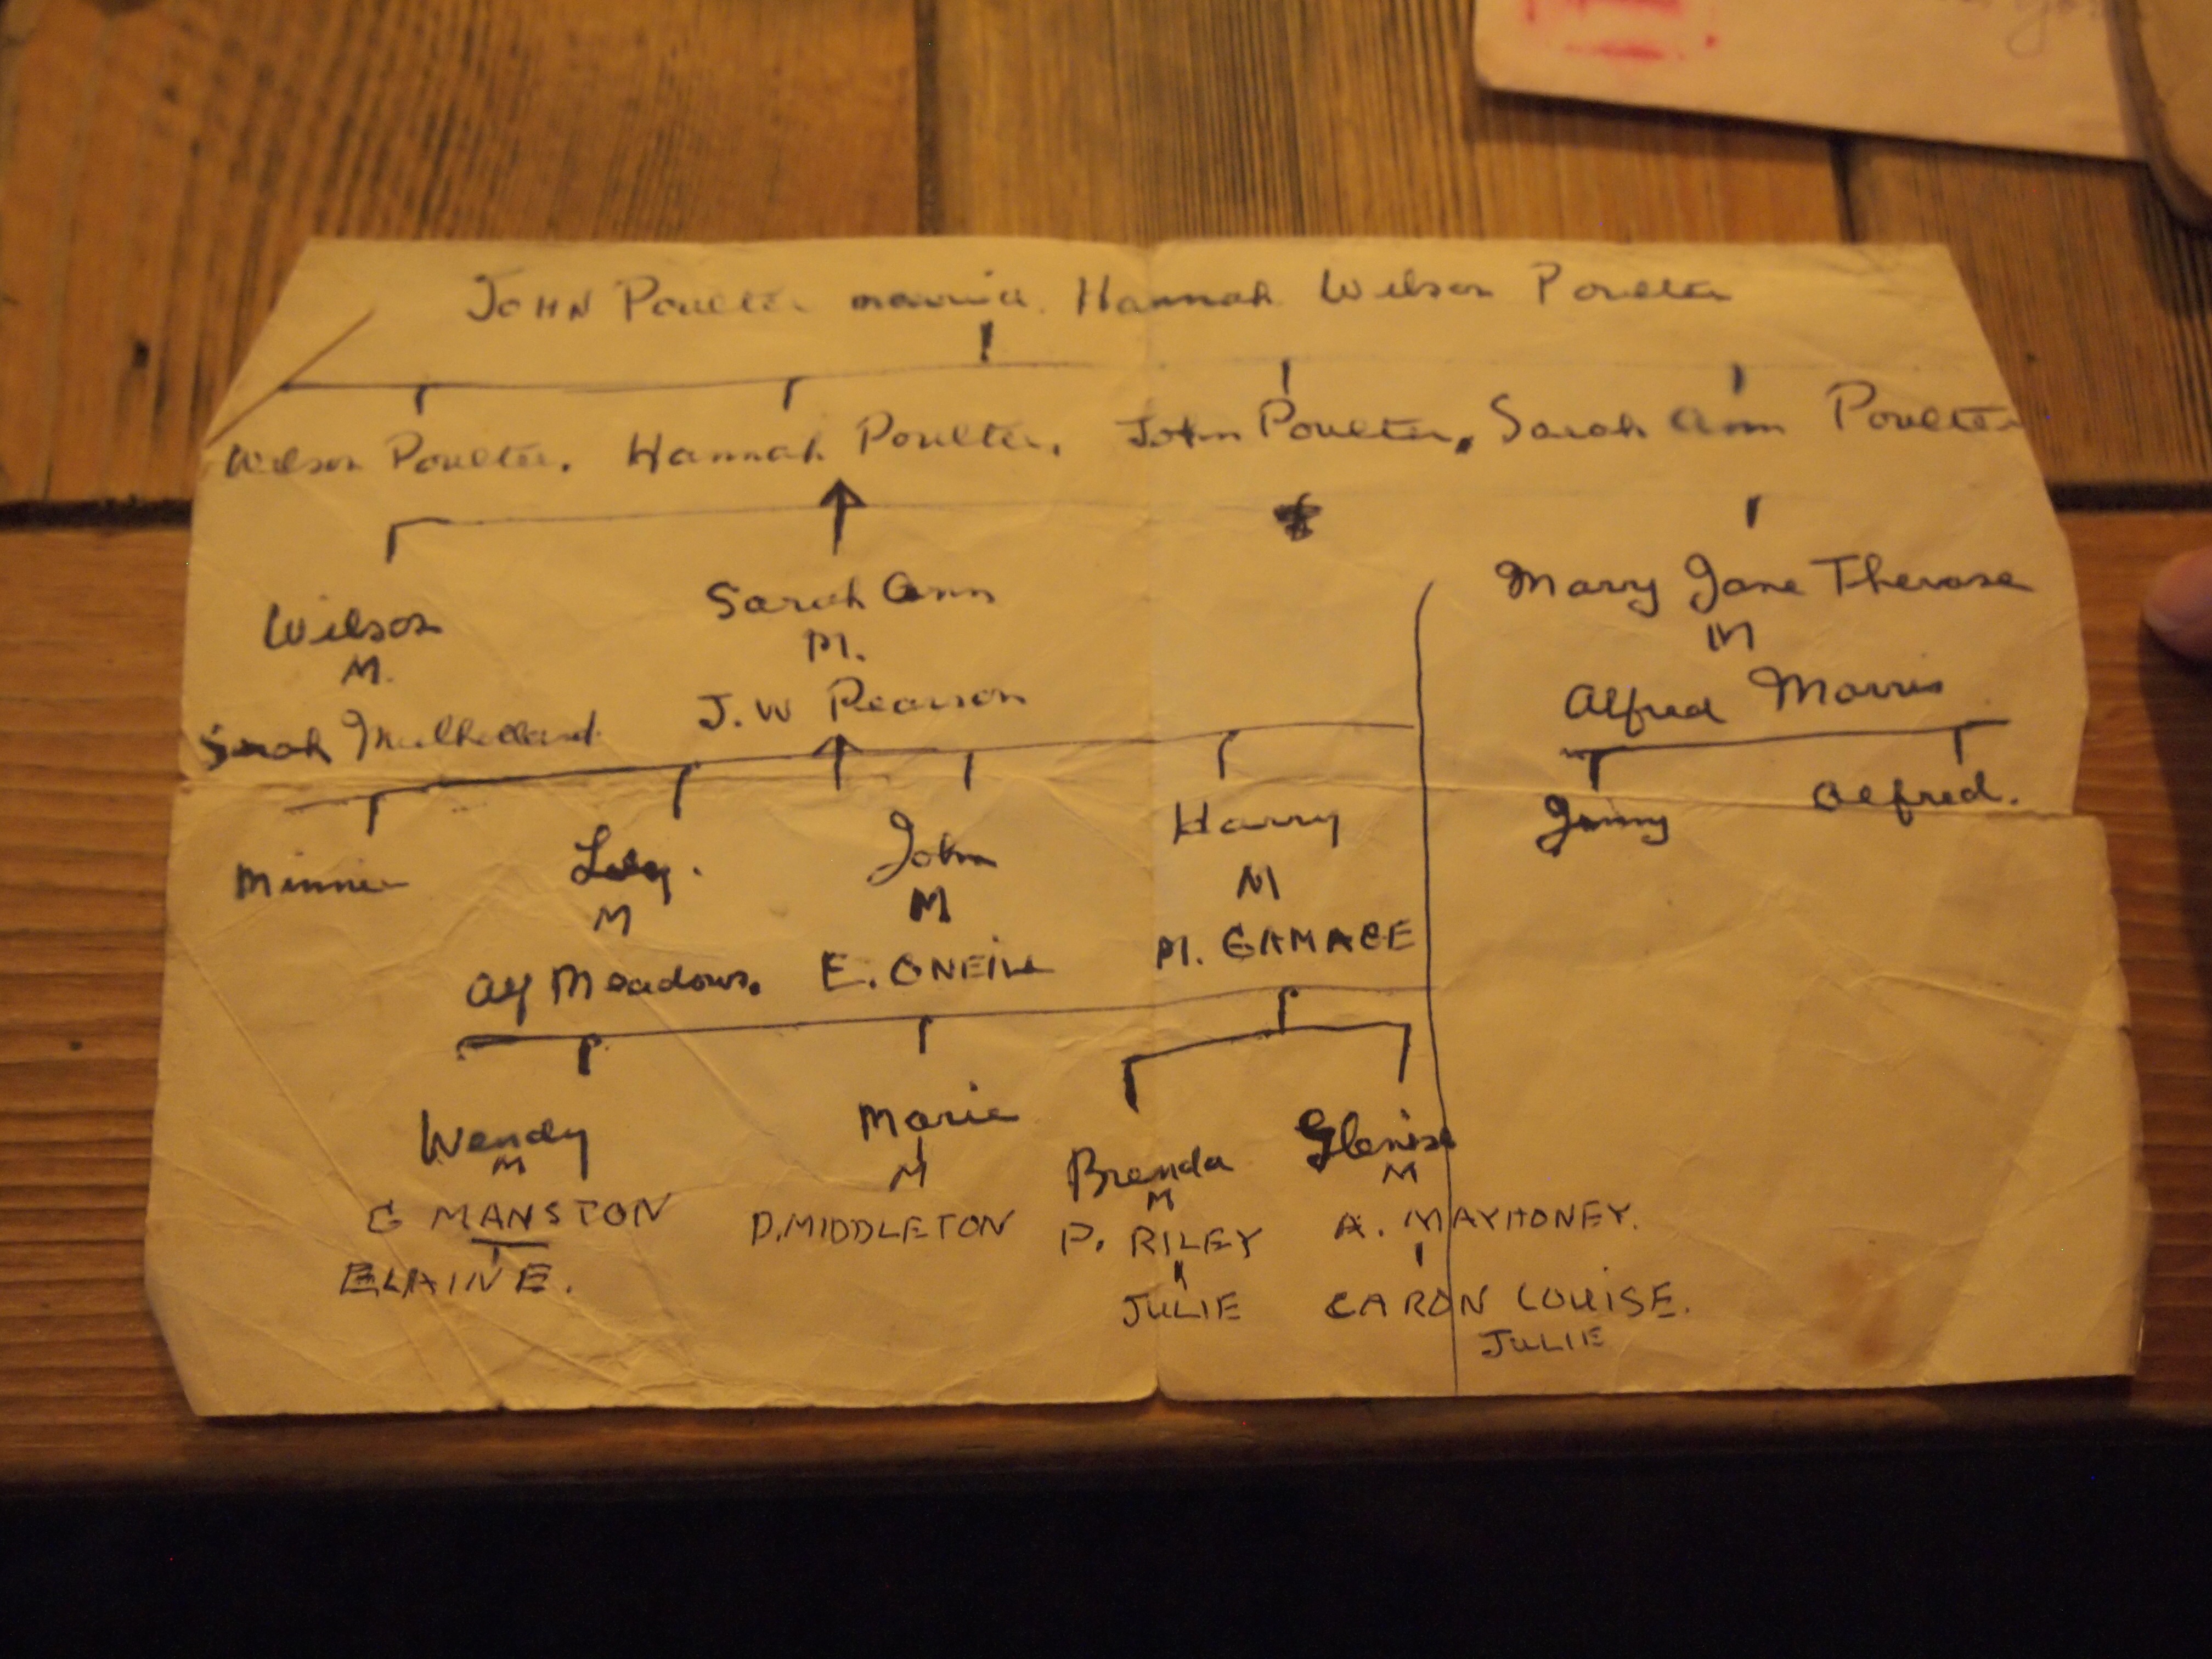 JOHN Poulter married. Hannah Wilson Poulter
Wilson Poulter. Hannah Poulter. John Poulter. Sarah Ann Poulter
Wilson
M.
Sarah Mulholland.
Sarah Ann
M.
J. W Pearson
Mary Jane Therase
M
Alfred Morris
Minnie
Lily.
M
Alf Meadows.
John
M
E. ONEILL
Harry
M
M. GAMAGE
Jenny
Alfred.
Wendy
M
G MANSTON
ELAINE.
Marie
M
D. MIDDLETON
Brenda
M
P. RILEY
JULIE
Glenise
M
A. MAYHONEY.
CARON LOUISE.
JULIE